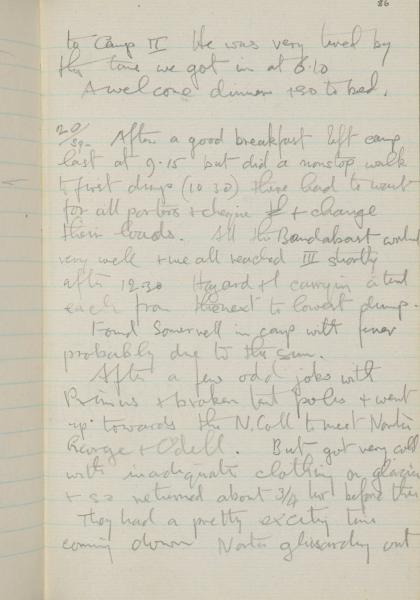 86
to Camp II He was very tired by
the time we got in at 6.10
A welcome dinner + so to bed.
20/5th After a good breakfast left camp
last at 9.15 but did a nonstop walk
to first dump (10 30) there had to wait
for all porters + + change
their loads. All the Bandabast worked
very well + we all reached III shortly
after 12.30 Hazard + I carrying a tent
each from the next to lowest dump.
Found Somervell in camp with fever
probably due to the sun.
After a few odd jobs with
Primus + broken tent poles + went
up towards the N. Coll to meet Norton
George + Odell. But got very cold
with inadequate clothing on glacier
+ so returned about 3/4 hr before they
They had a pretty exciting time
coming down Norton glissarding out